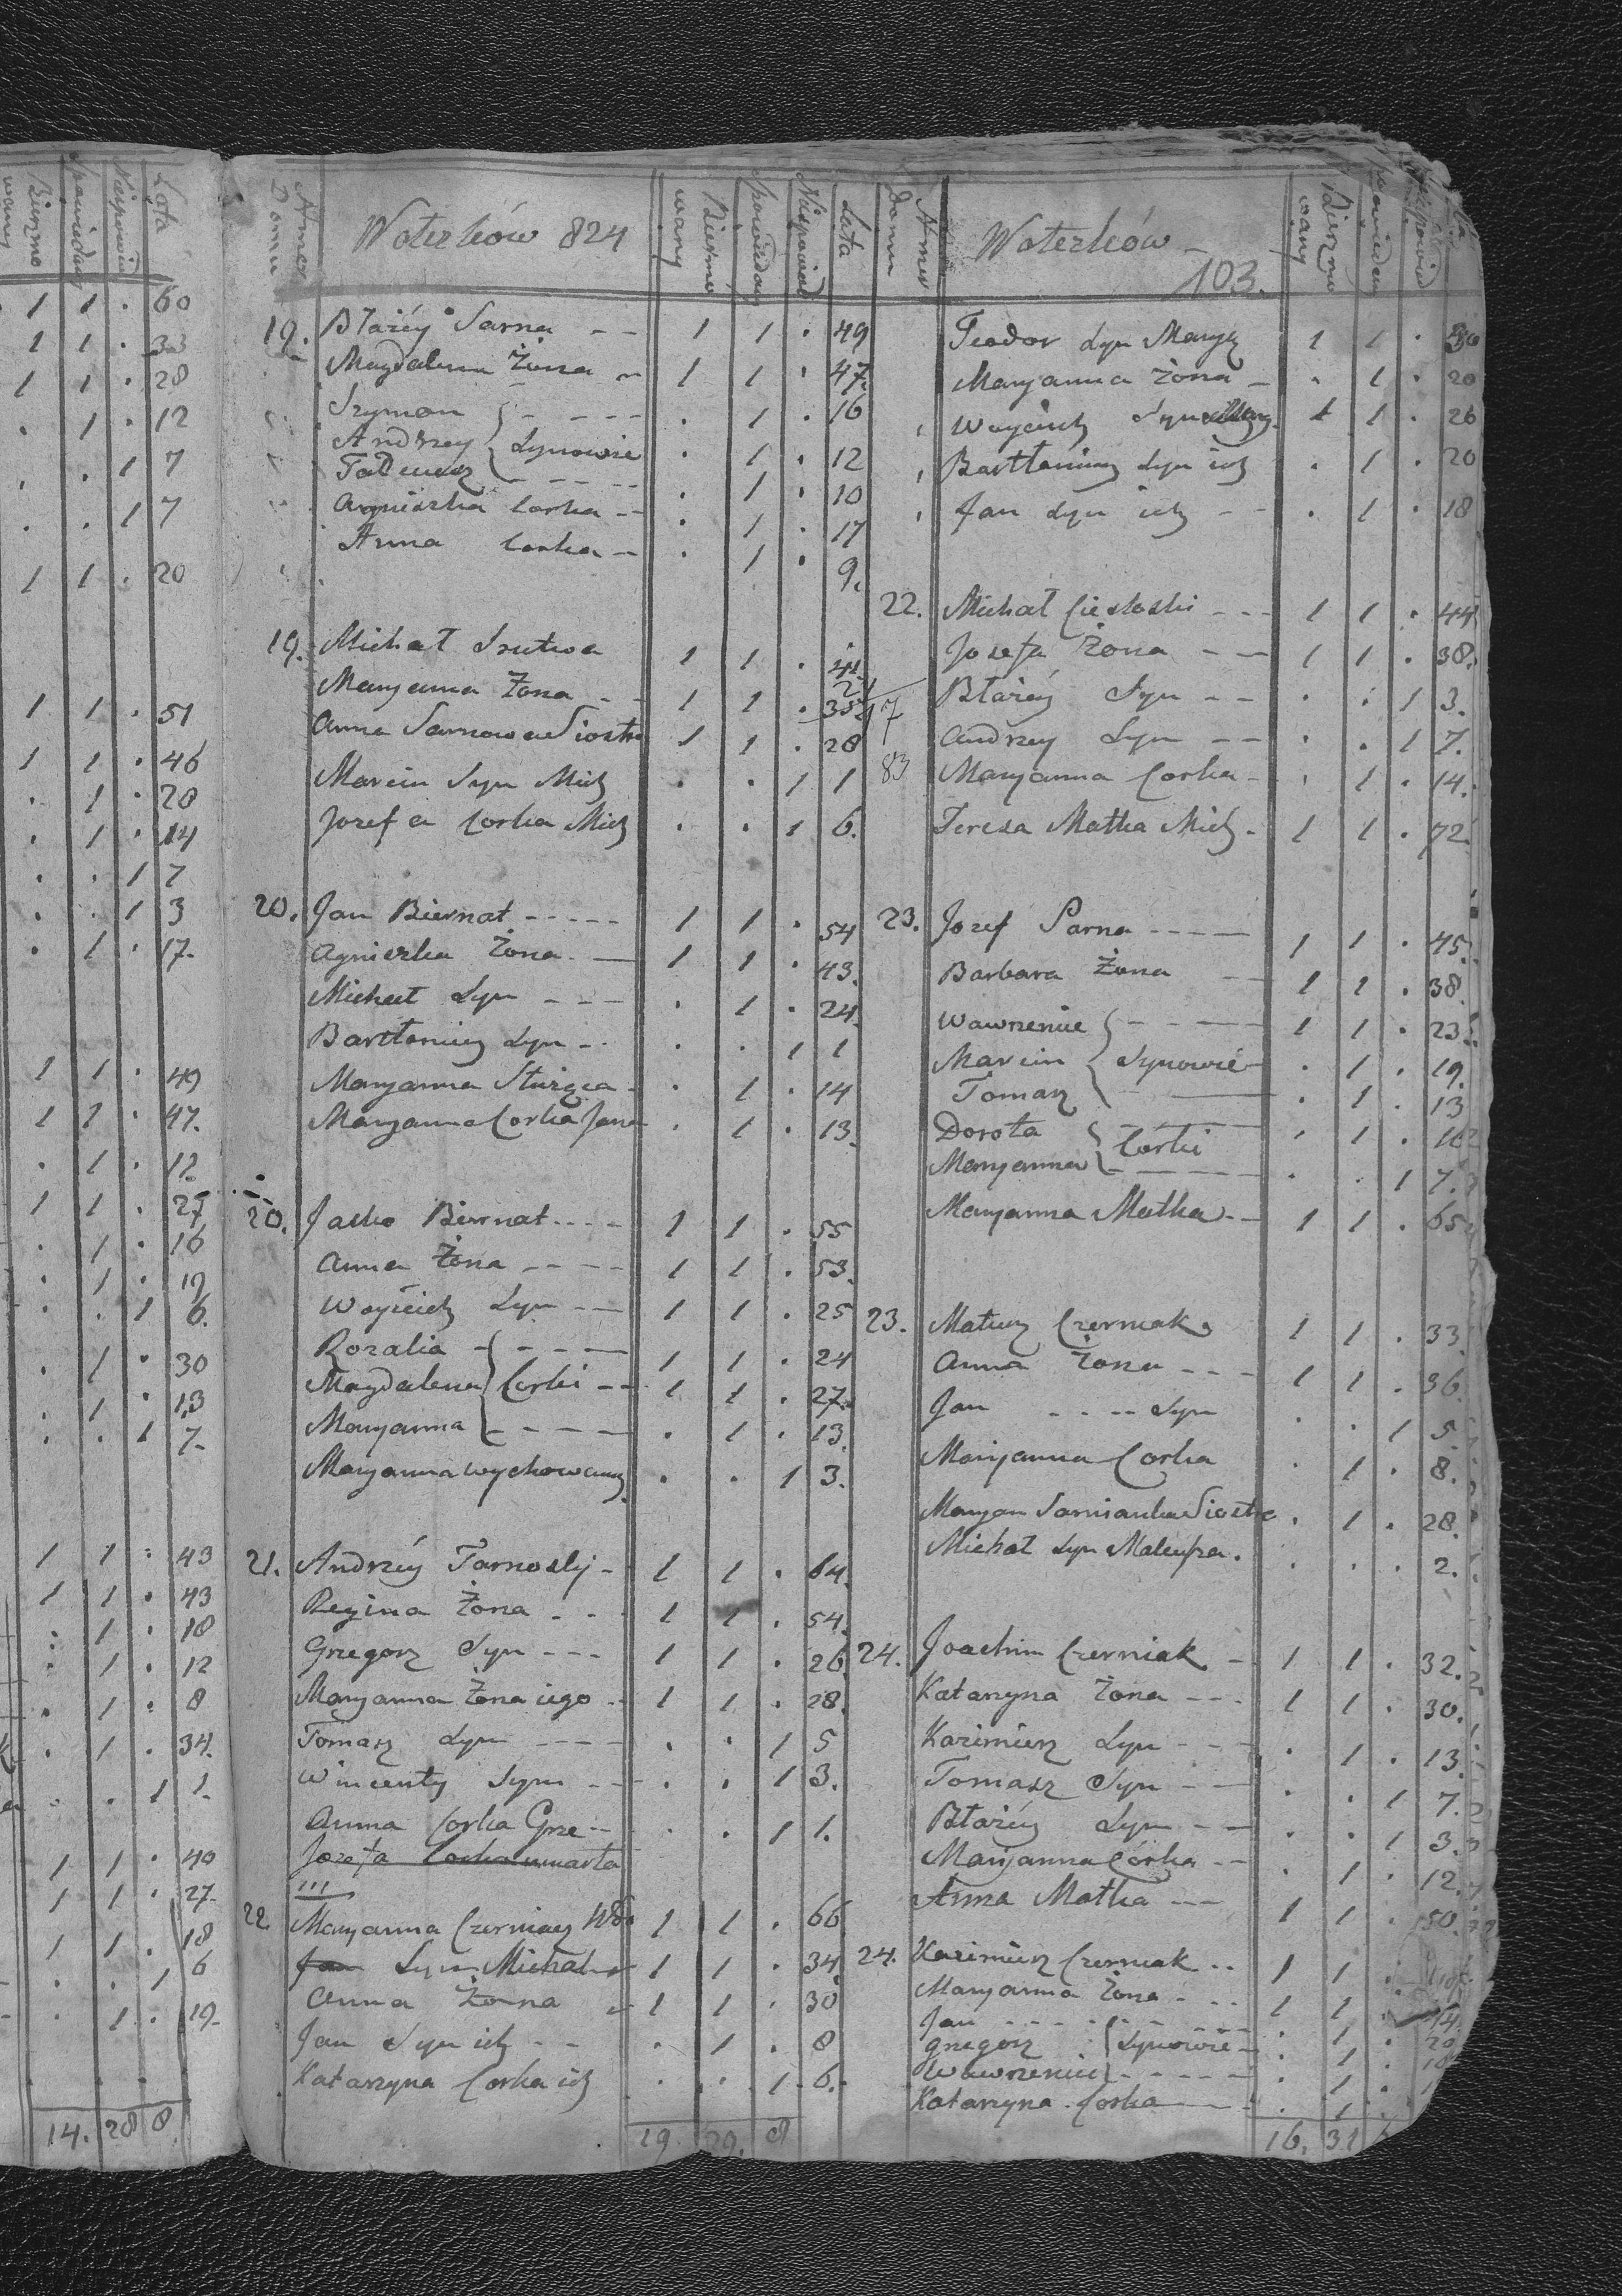 Lata
Niespowied
Spowiedany
Bierzmo
wany
1 1 . 60
1 1 . 33
1 1 . 28
. 1 . 12
. . 1 7
. . 1 7
1 1 . 20
1 1 . 51
1 1 . 46
. 1 . 28
. 1 . 14
. . 1 7
. . 1 3
. 1 . 17.
1 1 . 49
1 1 . 47.
. 1 . 12.
1 1 . 27
. 1 . 16
. 1 . 12
. . 1 6.
. 1 . 30
. 1 . 13
. . 1 7.
1 1 . 43
1 1 . 43
. 1 . 18
. 1 . 12
. 1 . 8
. 1 . 34.
. . 1 1.
1 1 . 40
1 1 . 27.
1 1 . 18
. . 1 6
. 1 . 19.
14. 28 8.
Numer
Domu
Woterków 824
Bierzmo
wany
Spowiedany
Niespowied
Lata
19. Błażéy Sarna -- 1 1 . 49
Magdalena Żona - 1 1 . 47.
Szymon - - - - . 1 . 16
Andrzey Synowie . 1 . 12
Tadeusz - - - - . 1 . 10
Agnieszka Corka -- . 1 . 17
Anna Corka - . 1 . 9.
19. Michał Srutwa 1 1 . 41.
Maryanna Żona - - 1 1 . 35
Anna Sarnowa Siostra 1 1 . 28
Marcin Syn Mich . . 1 1
Jozefa Corka Mich . . 1 6.
20. Jan Biernat ----- 1 1 . 54
Agnieszka Żona - — 1 1 . 43.
Michał Syn - - - . 1 . 24.
Bartłomiey Syn - - . . 1 1
Maryanna Służąca - . 1 . 14
Maryanna Corka Jana . 1 . 13.
20. Jasko Biernat ---- 1 1 . 55
Anna Żona ---- 1 1 . 53.
Woyciech Syn --- 1 1 . 25
Rozalia - - - — 1 1 . 24
Magdalena Corki -- 1 1 . 27.
Maryanna - - - - . 1 . 13.
Maryanna wychowany . . 1 3.
21. Andrzéy Tarnosky - 1 1 . 64.
Regina Żona - - - 1 1 . 54.
Grzegorz Syn --- 1 1 . 26
Maryanna Żona iego - 1 1 . 28.
Tomasz Syn ---- . . 1 5
Wincenty Syn --- . . 1 3.
Anna Corka Grze -- . . 1 1.
Jozefa Corka umarła
22. Maryanna Czerniaey Wdo 1 1 . 66
Jan Syn Michał 1 1 . 34.
Anna Żona 1 1 . 30
Jan Syn ich - - . 1 . 8
Katarzyna Corka ich . . 1 6.
19 29. 8
Numer
Domu
Woterków -
103.
Bierzmo
wany
17
83
Teodor Syn Mary 1 1 . 30
Maryanna Żona - . 1 . 20
Woyciech Syn 1 1 . 26
Bartłomiey Syn ich . 1 . 20
Jan Syn ich - - . 1 . 18
22. Michał Ciesloski --- 1 1 . 44
Jozefa Żona - — 1 1 . 38.
Błażéy Syn -- . . 1 3.
Andrzey Syn -- . . 1 7.
Maryanna Corka - . 1 . 14.
Teresa Matka Mich. 1 1 . 72.
23. Jozef Sarna ---- 1 1 . 45.
Barbara Żona — 1 1 . 38.
Wawrzeniec - — 1 1 . 23
Marcin Synowie . 1 . 19.
Tomasz — . 1 . 13
Dorota Corki . 1 .
Maryanna - - - . . 1 7.
Maryanna Matka -- 1 1 . 65
23. Mateusz Czerniak 1 1 . 33.
Anna Żona --- 1 1 . 36.
Jan - - -- Syn . . 1 5.
Maryanna Corka . 1 . 8.
Maryan Sarnianka Siostra . 1 . 28.
Michał Syn Mateusza. . . . 2.
24. Joachim Czerniak - 1 1 . 32.
Katarzyna Żona --- 1 1 . 30.
Kazimierz Syn --- . 1 . 13.
Tomasz Syn -- . . 1 7.
Błażéy Syn -- . . 1 3.
Maryanna Córka -- . 1 . 12.
Anna Matka --- 1 1 . 50.
24. Kazimierz Czerniak .. 1 1 .
Maryanna Żona - .. 1 1 .
Jan - - - - - . 1 .
Grzegorz Synowie . 1 .
Wawrzeniec - - - . 1 .
Katarzyna Corka — . 1
16. 31